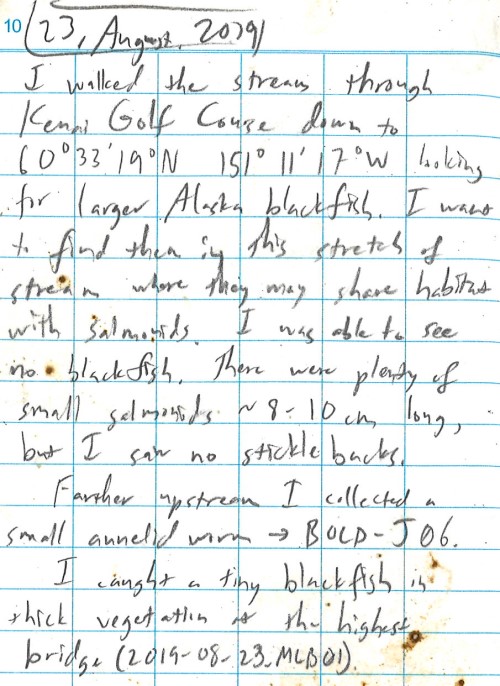 10
23, August, 2019
I walked the stream through
Kenai Golf Course down to
60°33'19°N 151° 11' 17°W looking
for larger Alaska blackfish. I want
to find them in this stretch of
stream where they may share habitat
with salmonids. I was able to see
no blackfish. There were plenty of
small salmonids ~8-10 cm long,
but I saw no sticklebacks.
Farther upstream I collected a
small annelid worm → BOLD-J06.
I caught a tiny blackfish in
thick vegetation at the highest
bridge (2019-08-23-MLB01).